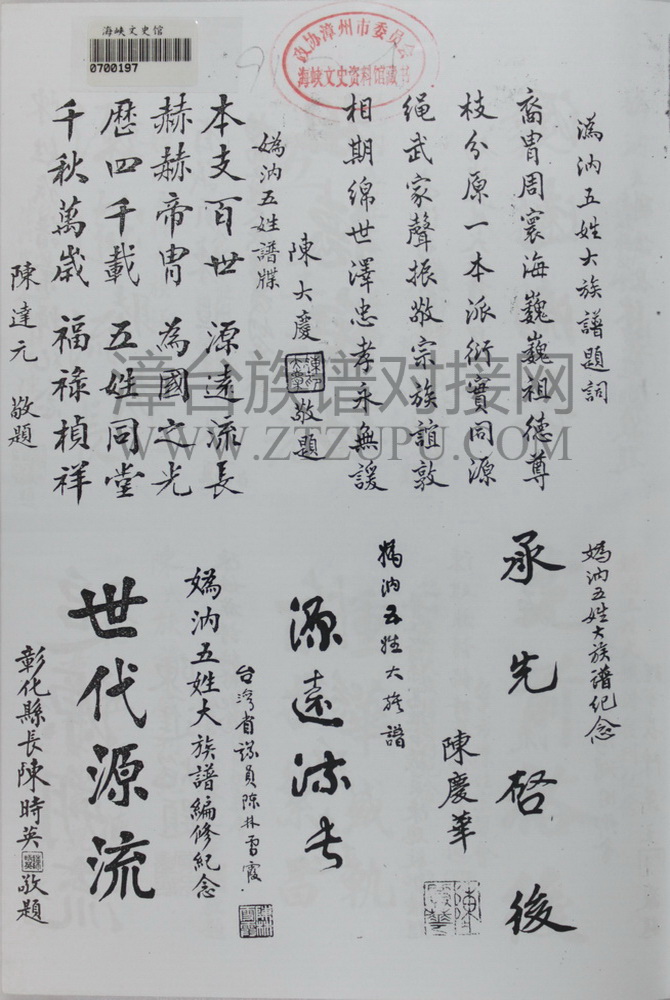 海峡文史馆
0700197
政协漳州市委员会
海峡文史资料馆藏书
溈汭五姓大族譜題詞
裔胄周寰海巍巍祖德尊
枝分原一本派衍實同源
绳武家聲振敬宗族誼敦
相期绵世澤忠孝永無諼
陳大慶 敬題
媯汭五姓譜牒
本支百世 源遠流長
赫赫帝胄 為國之光
歷四千載 五姓同堂
千秋萬歲 福祿楨祥
陳達元 敬題
媯汭五姓大族譜纪念
承先啓後
陳慶華
媯汭五姓大族譜
源遠流长
台灣省議員陳林雪霞
媯汭五姓大族譜編修紀念
世代源流
彰化縣長陳時英敬題
漳台族谱对接网
WWW.ZTZUPU.COM